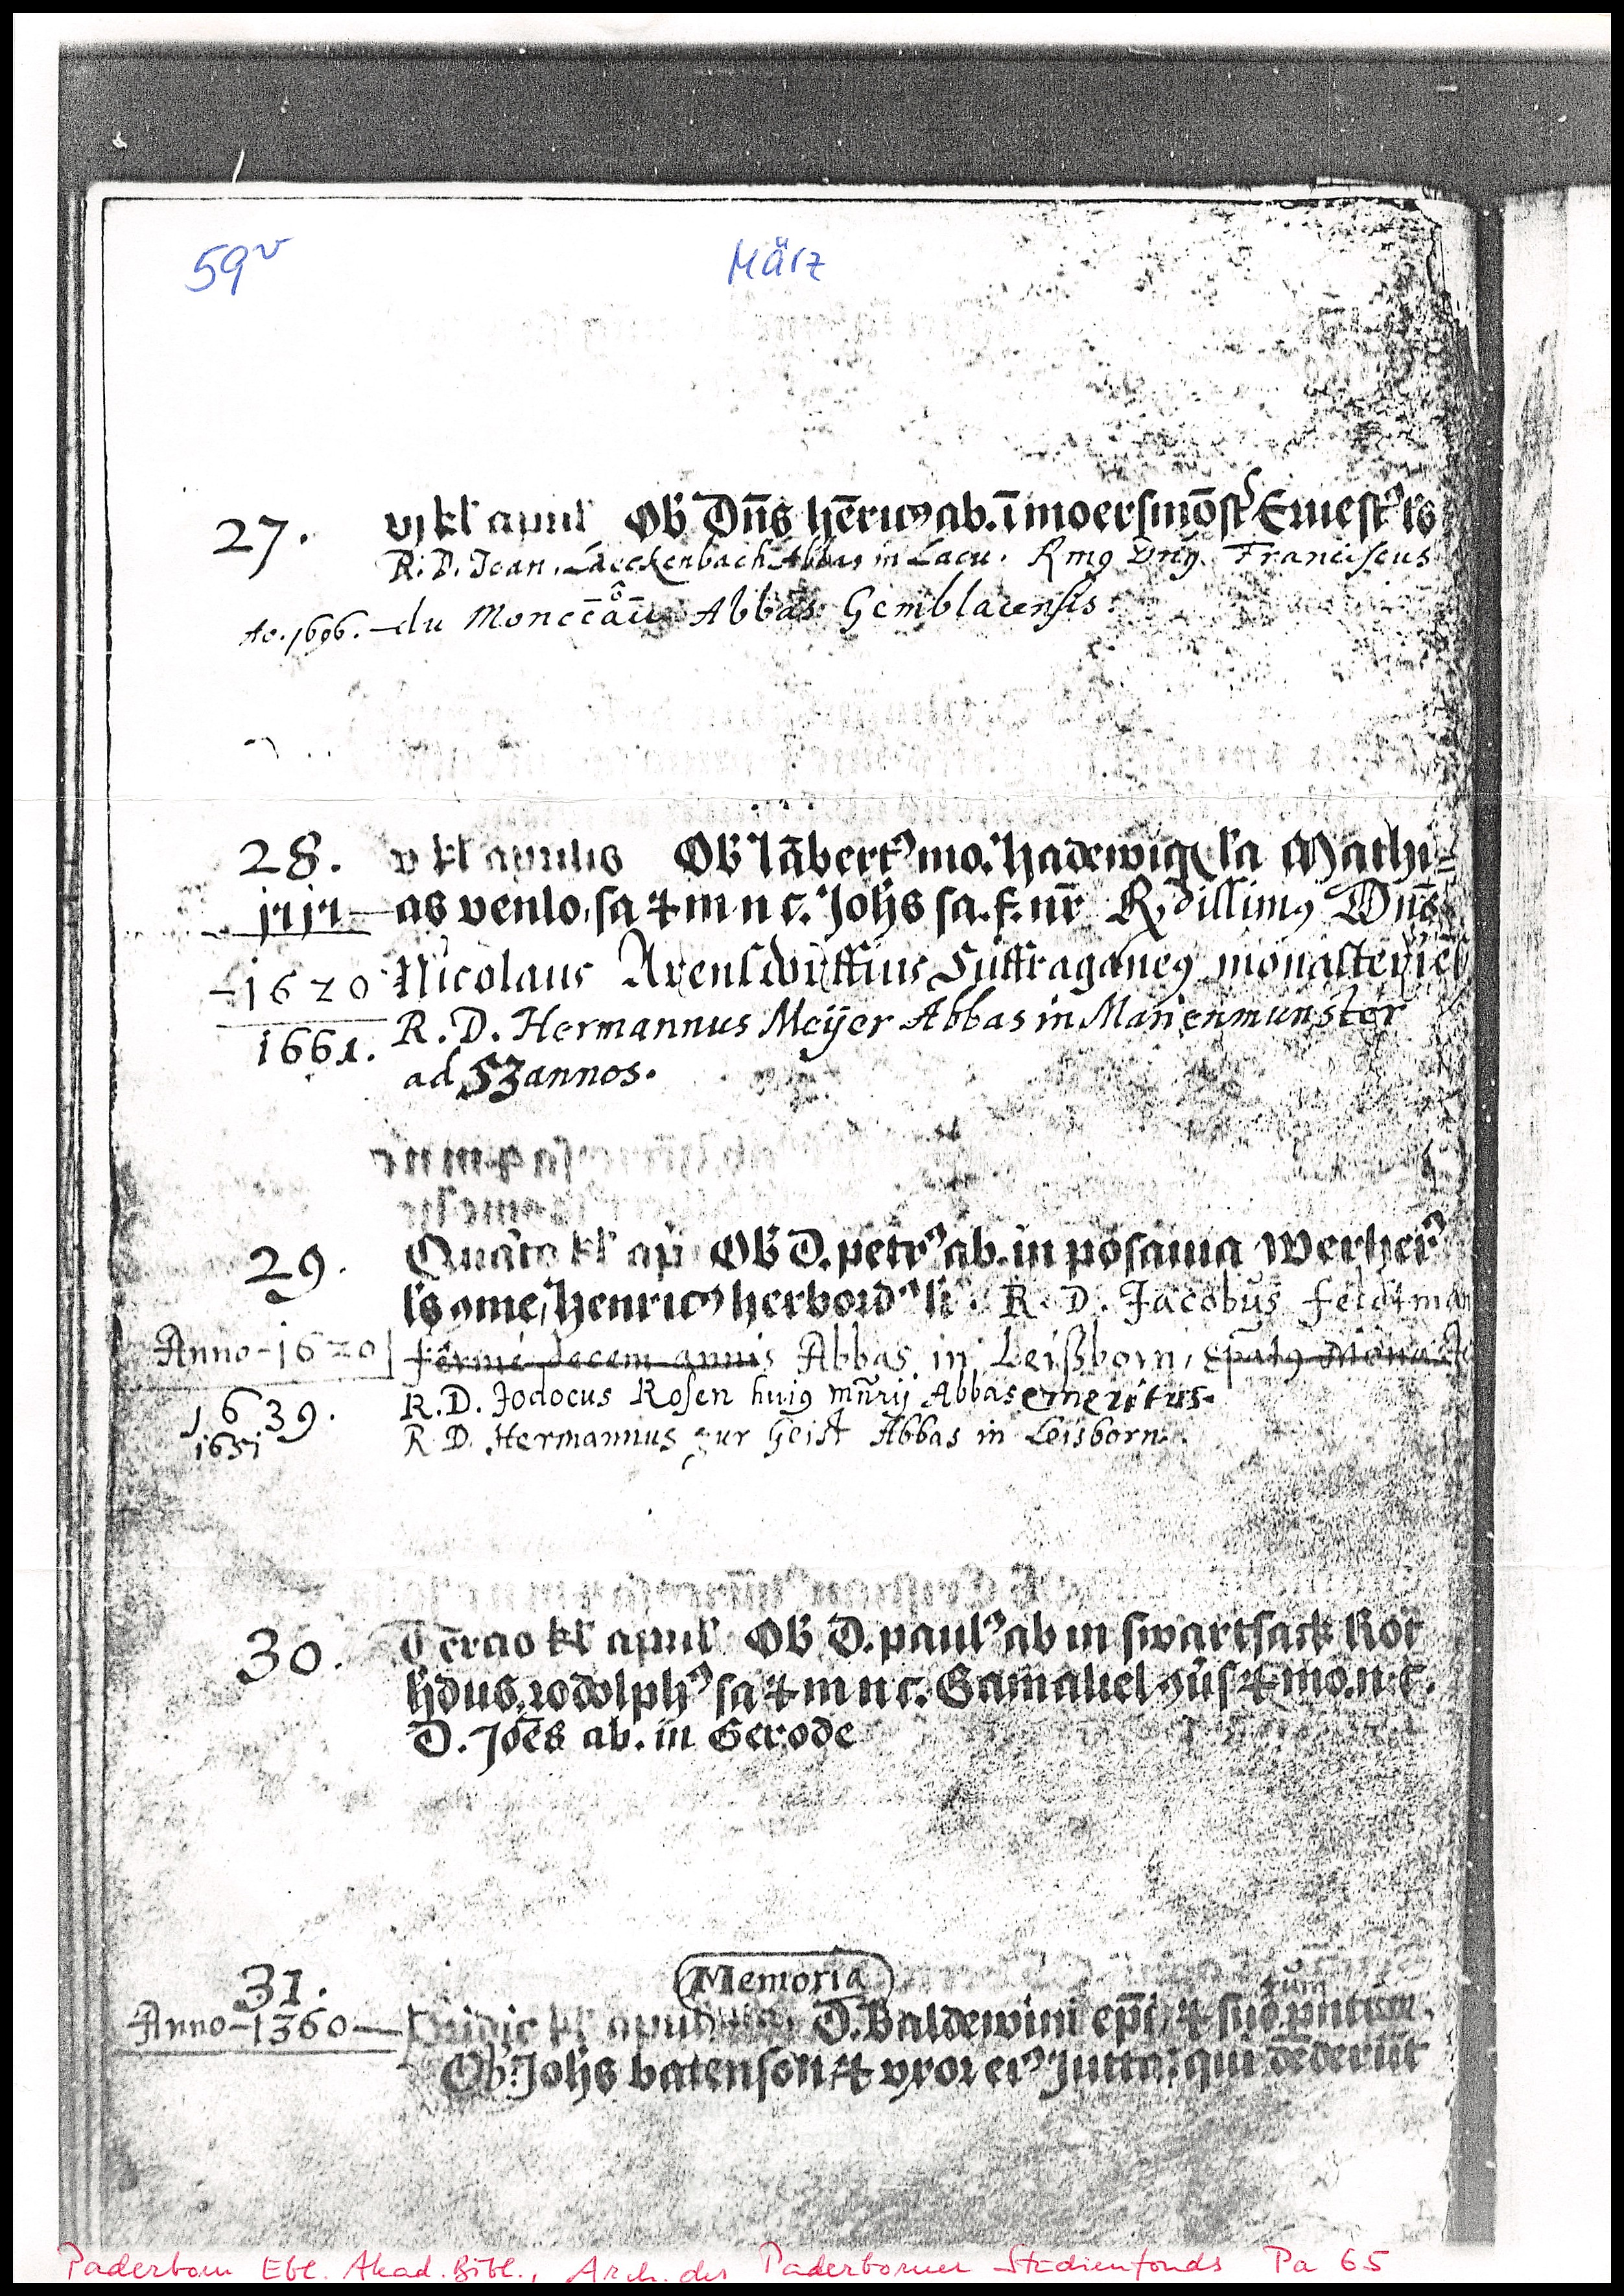 59v März
27. vj kl april Ob Dn̄s hēric9 ab. ī moersmōst Ernest9 ls
R. D. Joan. Laeckenbach Abbas in Lacu. Rmg Dng Franciscus
Ao. 1696. du Moncēāu Abbas Gemblacensis.
28. v kl aprilis Ob lābert9 mo. hadewigis la Mathi=
as venlo, sa & m n c. Johs sa. f. nr̄ Rdissimg Dn̄s
-1620 Nicolaus Arensdorffius Suffraganeg monasteriēs
1661. R. D. Hermannus Meÿer Abbas in Marienmunster
ad 53 annos.
29. Quarto kl ap Ob D. petr9 ab. in posania Werher9
ls ome, henric9 herbord9 li. R. D. Jacobus feldtman
Anno-1620 fermé decem annis Abbas in Leißborn,
1639. R. D. Jodocus Rosen huig mn̄rij Abbas emeritus.
1651 R. D. Hermannus zur Geist Abbas in Leisborn.
30. Tercio kl april Ob D. paul9 ab in swartsack Rot
hdus, rodolph9 sa & m n c. Gamaliel 9us & mo. n. c.
D. Joēs ab. in Gerode
Memoria
31. rum
Anno-1360 Pridie kl april D. Baldewini ep̄i, & suo parentum.
Ob. Johs batenson & vxor ei9 Jutta, qui dederūt
Paderborn Ebl. Akad. Bibl., Arch. des Paderborner Studienfonds Pa 65